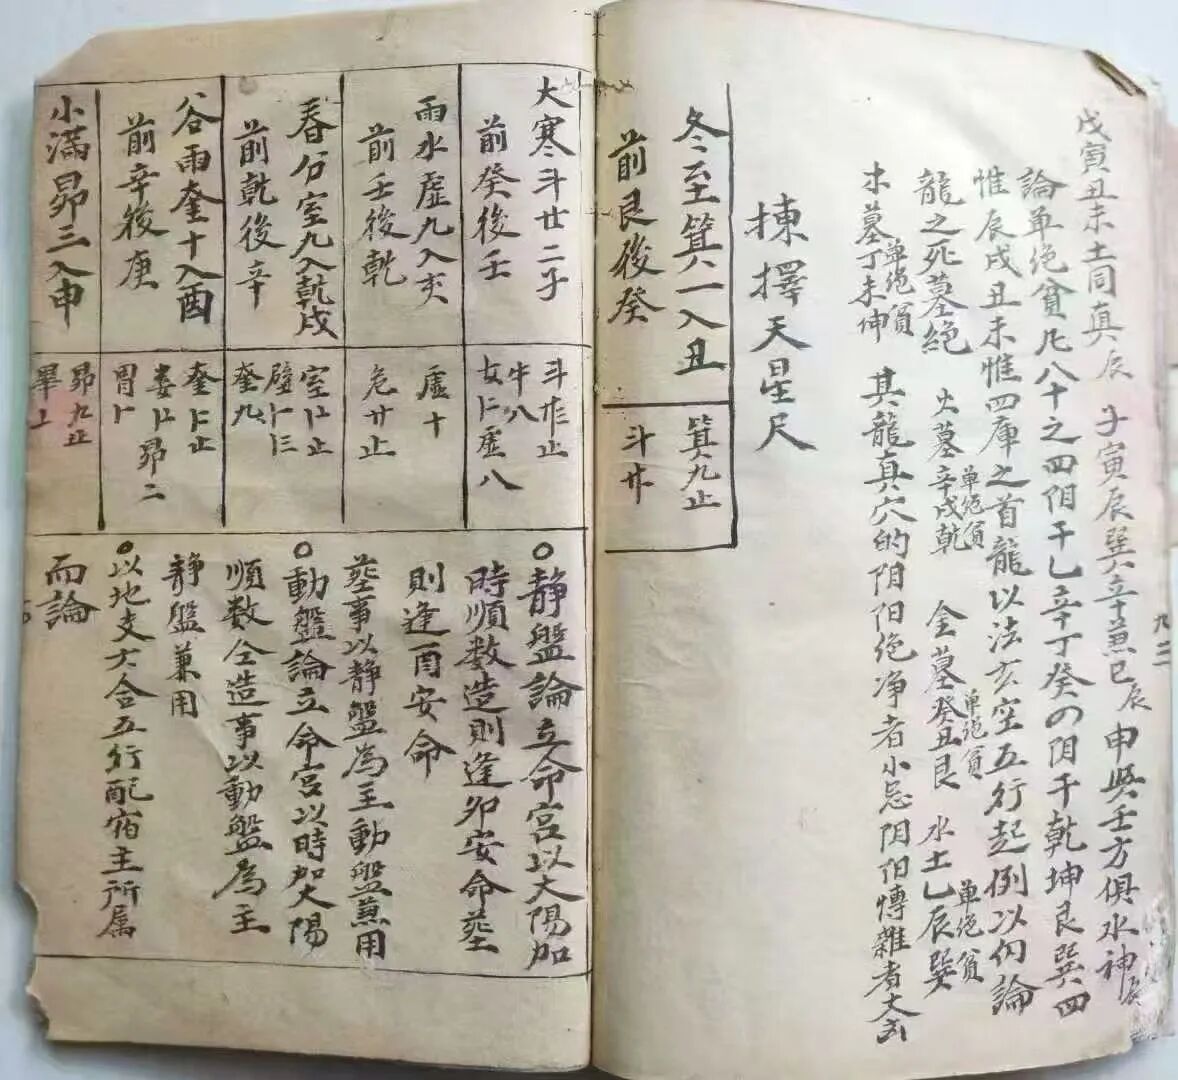 戊寅丑未土同真辰 子寅辰巽辛兼巳辰 申與壬方俱水神辰
論单绝貧凡八十之四阳干乙辛丁癸の阴干乾坤艮巽四
惟辰戍丑未惟四庫之首龍以法玄空五行起例以仍論
龍之死墓绝 火墓辛戍乾单绝貧 金墓癸丑艮单绝貧 水土乙辰巽单绝貧
木墓丁未伸单绝貧 其龍真穴的阴阳绝净者小忌阴阳慱雜者大凶
揀擇天星尺
冬至箕一入丑
前艮後癸
箕九止
斗廿
大寒斗廿二子
前癸後壬
斗廿止
牛八
女虚八
雨水虚九入亥
前壬後乾
虚十
危廿止
春分室九入乹戍
前乾後辛
室止
壁
奎九
谷雨奎十入酉
前辛後庚
奎止
娄昴二
胃
小满昴三入申
昴九止
畢
○静盤論立命宫以太陽加
時順数造則逢卯安命塟
則逢酉安命
塟事以静盤為主動盤兼用
○動盤論立命宫以時加太陽
順数仝造事以動盤為主
静盤兼用
○以地支六合五行配宿主所属
而論